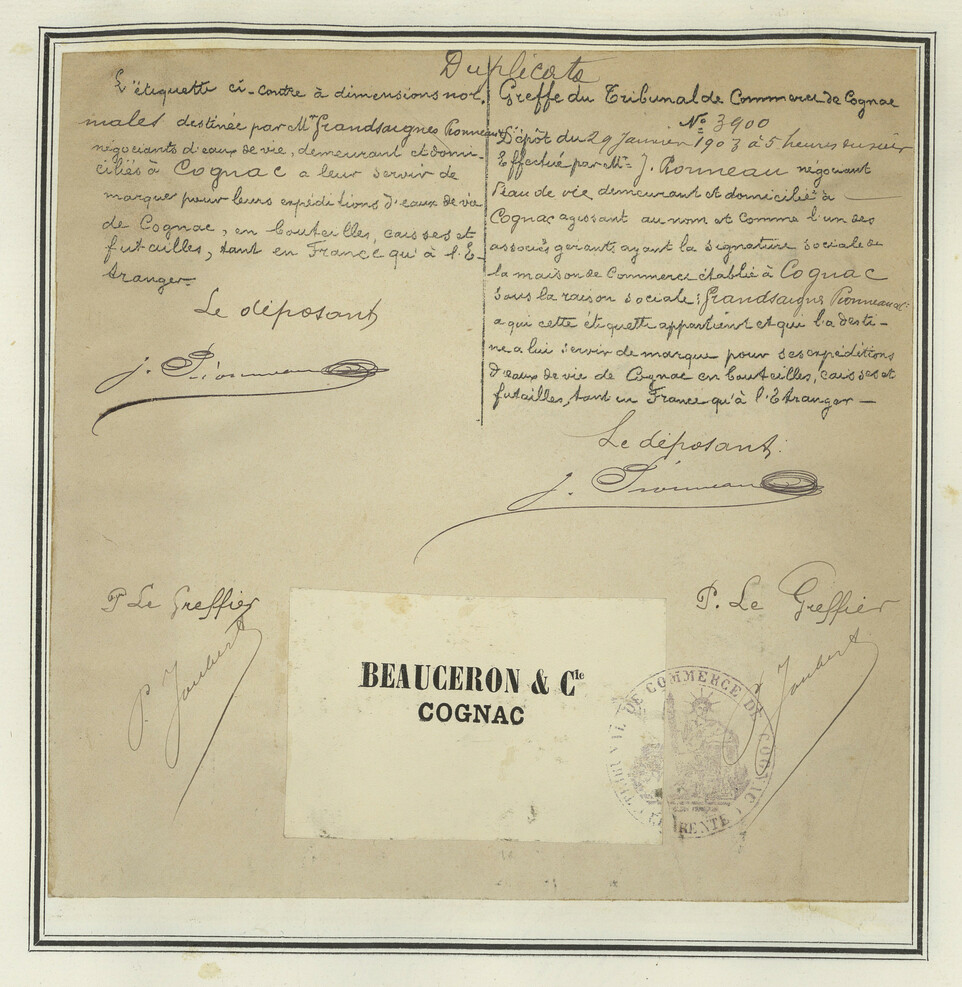 Duplicata
L'étiquette ci-contre à dimensions nor-
males destinée par Mrs Grandsaignes Pionneau
négociants d'eaux de vie, demeurant et domi-
ciliés à Cognac a leur servir de
marque pour leurs expéditions d'eaux de vie
de Cognac, en bouteilles, caisses et
futailles, tant en France qu'à l'E-
tranger.
Le déposant
J. Pionneau
Greffe du Tribunal de Commerce de Cognac
No 3900
Dépôt du 29 Janvier 1903 à 5 heures du soir
Effectué par Mr J. Pionneau négociant
d'eau de vie demeurant et domicilié à
Cognac agissant au nom et comme l'un des
associés gérants ayant la signature sociale de
la maison de Commerce établie à Cognac
sous la raison sociale: Grandsaignes Pionneau
a qui cette étiquette appartient et qui l'a desti-
née a lui servir de marque pour ses expéditions
d'eaux de vie de Cognac en bouteilles, caisses et
futailles, tant en France qu'à l'Etranger —
Le déposant:
J. Pionneau
P. Le Greffier
P. Joubert
P. Le Greffier
Joubert
BEAUCERON & Cie
COGNAC
DE COMMERCE DE COGNAC